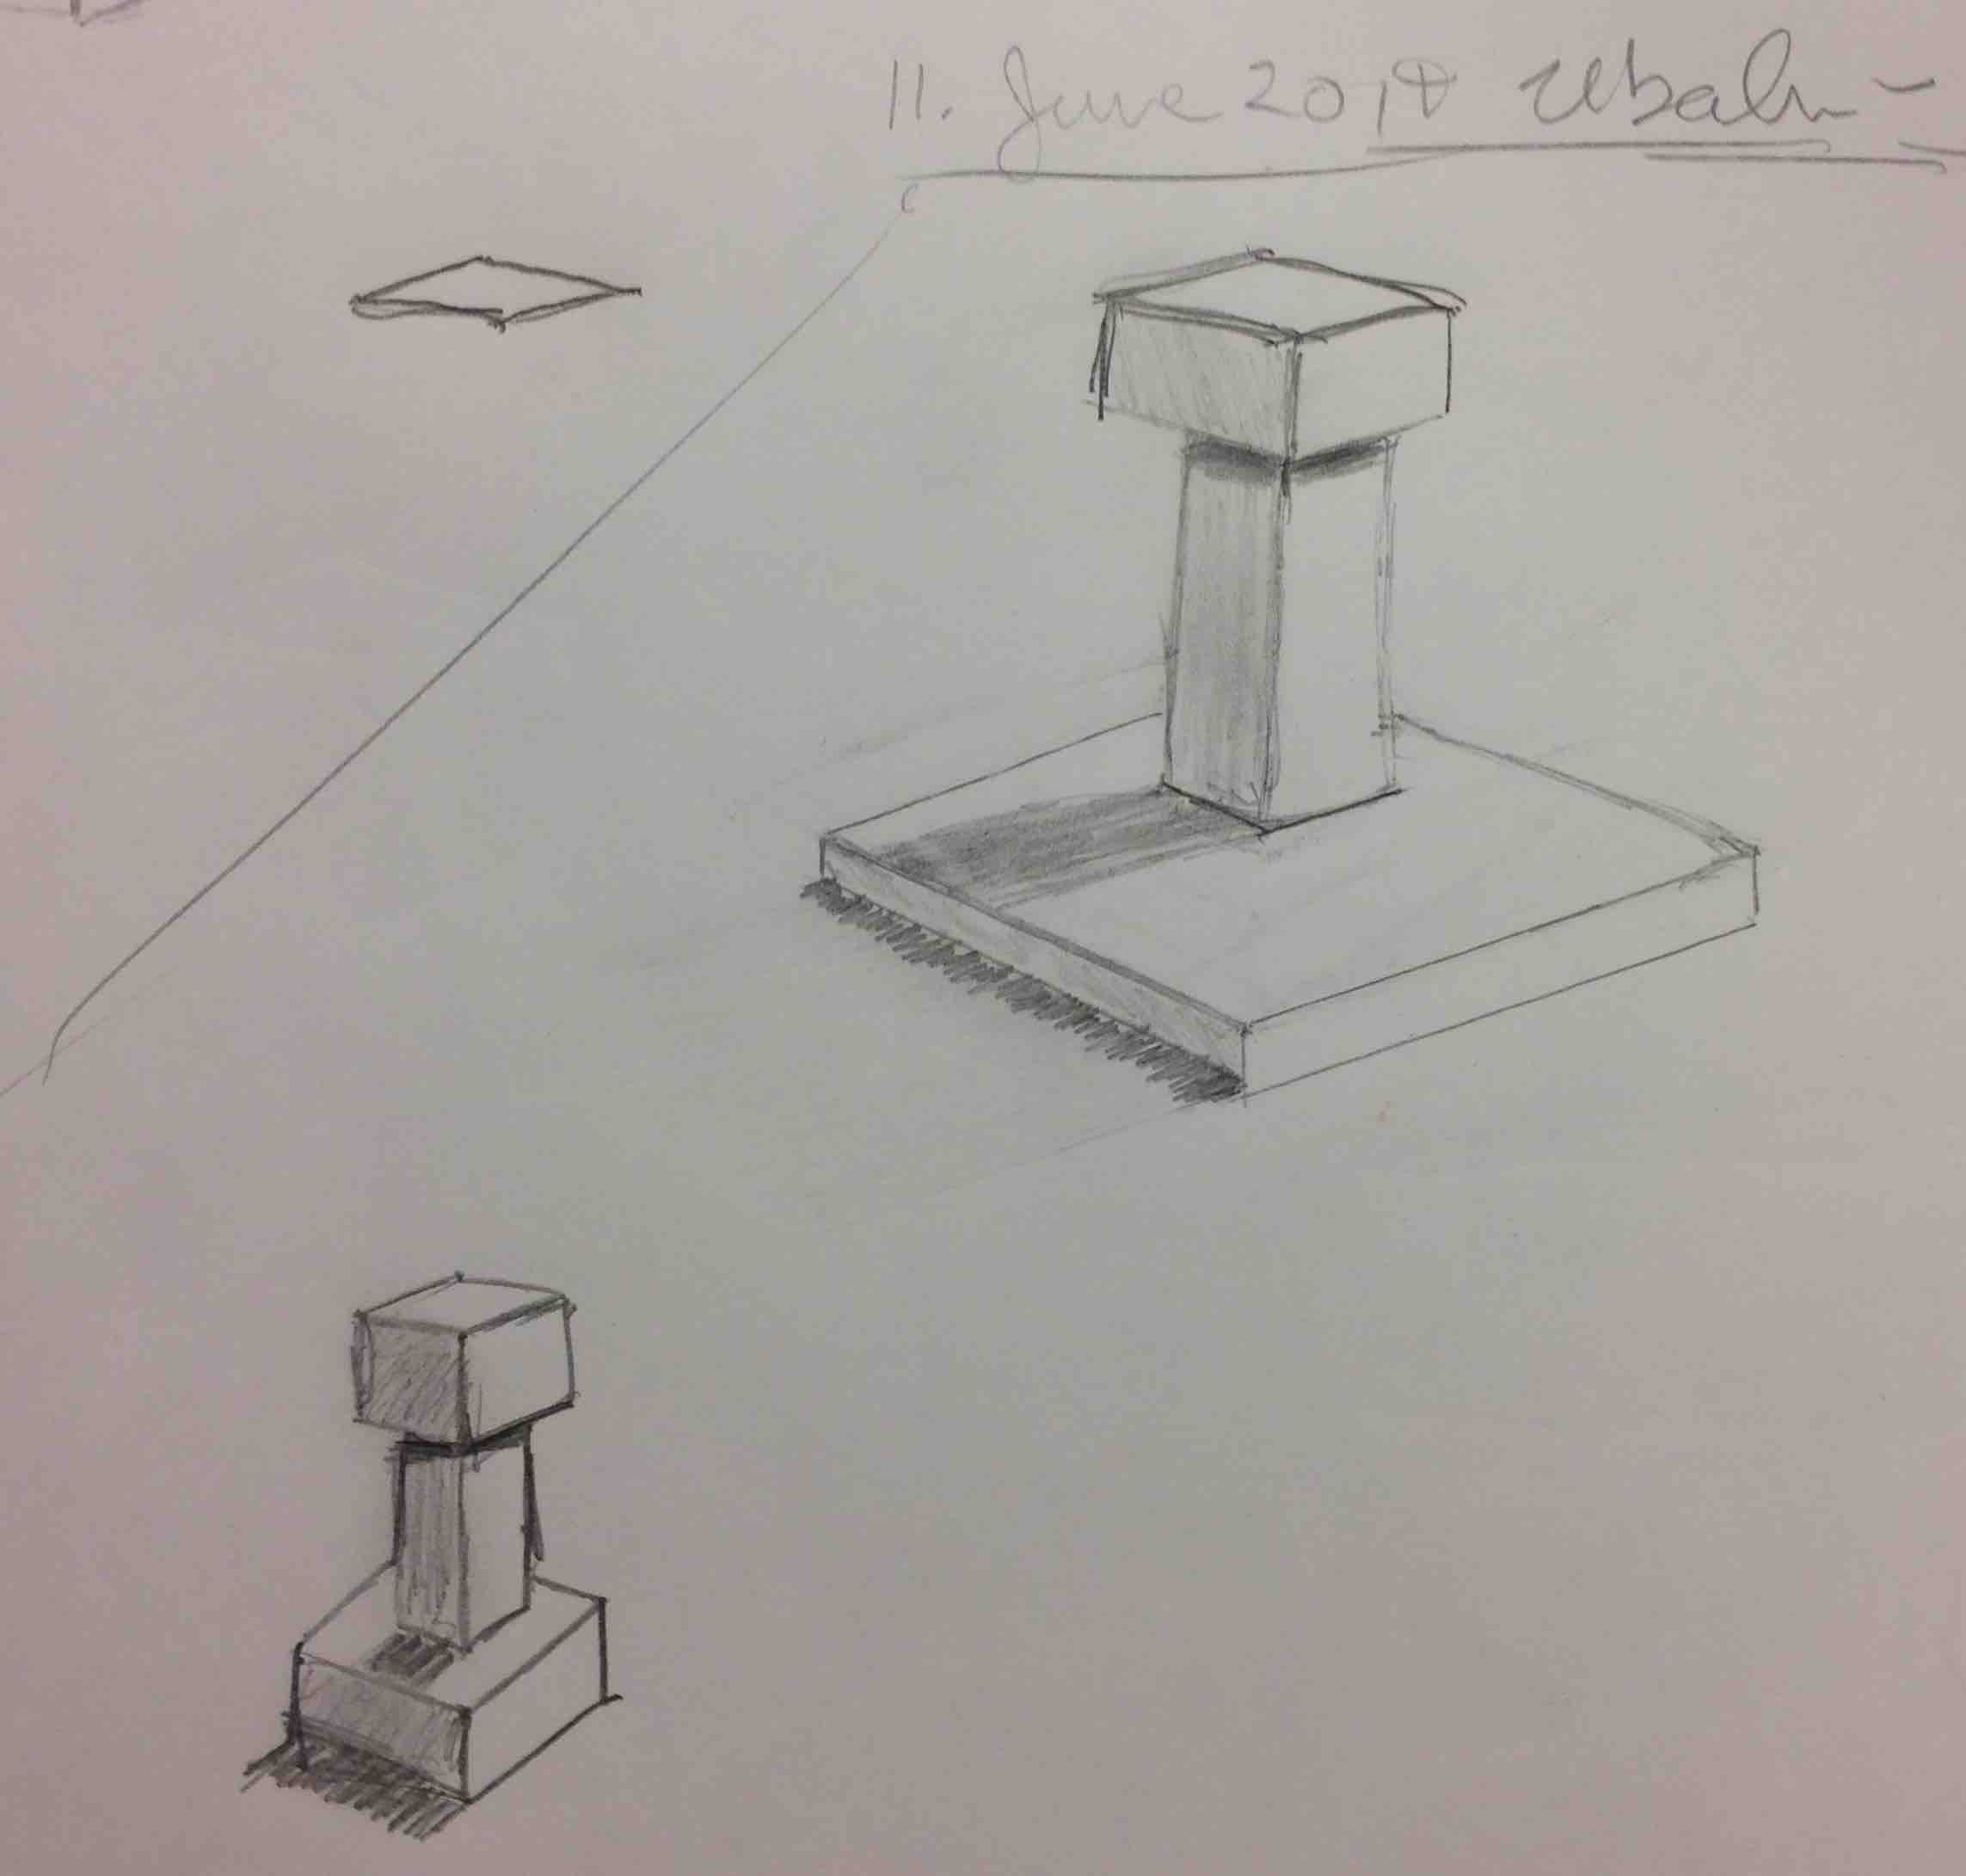 11. June 2018 Ubahn -